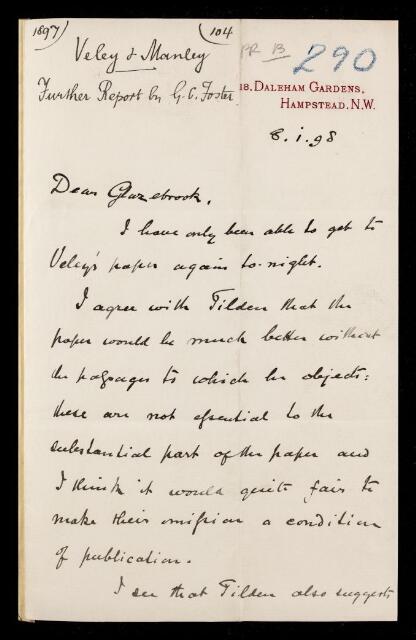 1897) (104
Veley & Manley
RR 13 290
Further Report by G. C. Foster.
18, DALEHAM GARDENS,
HAMPSTEAD. N.W.
8.i.98
Dear Glazebrook,
I have only been able to get to
Veley's paper again to-night.
I agree with Tilden that the
paper would be much better without
the passages to which he objects:
these are not essential to the
substantial part of the paper and
I think it would quite fair to
make their omission a condition
of publication.
I see that Tilden also suggests